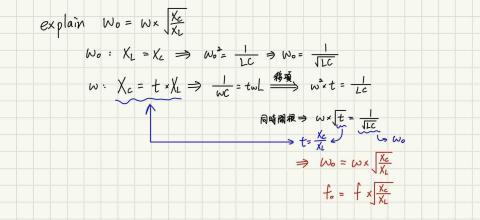 explain ω₀ = ω × √(X_C/X_L)
ω₀ : X_L = X_C ⇒ ω₀² = 1/LC ⇒ ω₀ = 1/√LC
ω : X_C = t × X_L ⇒ 1/ωC = tωL 移項⇒ ω² × t = 1/LC
同時開根 ⇒ ω × √t = 1/√LC
t = X_C/X_L ω₀
⇒ ω₀ = ω × √(X_C/X_L)
f₀ = f × √(X_C/X_L)